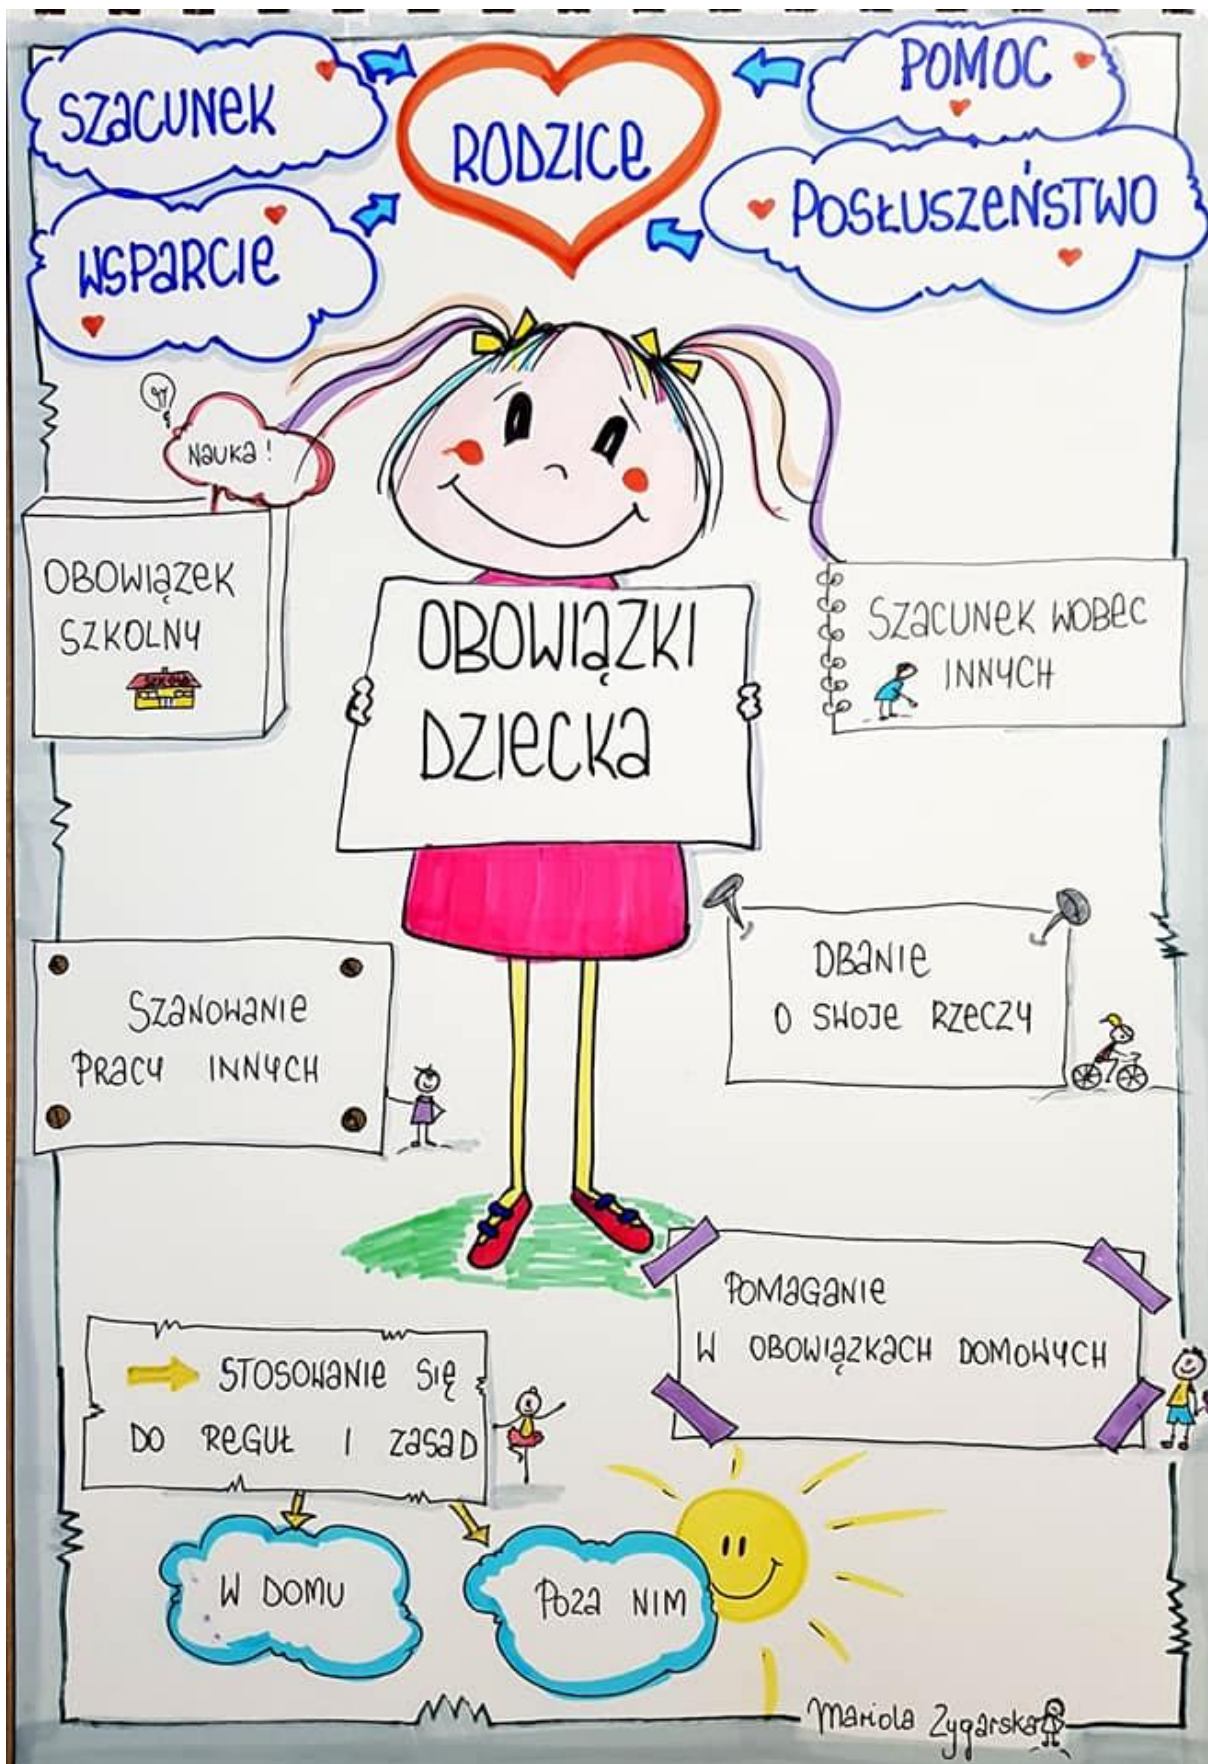 SZACUNEK
WSPARCIE
RODZICE
POMOC
POSŁUSZEŃSTWO
NAUKA!
OBOWIĄZEK
SZKOLNY
SZKOŁA
OBOWIĄZKI
DZIECKA
SZACUNEK WOBEC
INNYCH
SZANOWANIE
PRACY INNYCH
DBANIE
O SWOJE RZECZY
POMAGANIE
W OBOWIĄZKACH DOMOWYCH
STOSOWANIE SIĘ
DO REGUŁ I ZASAD
W DOMU
POZA NIM
Mariola Zygarska